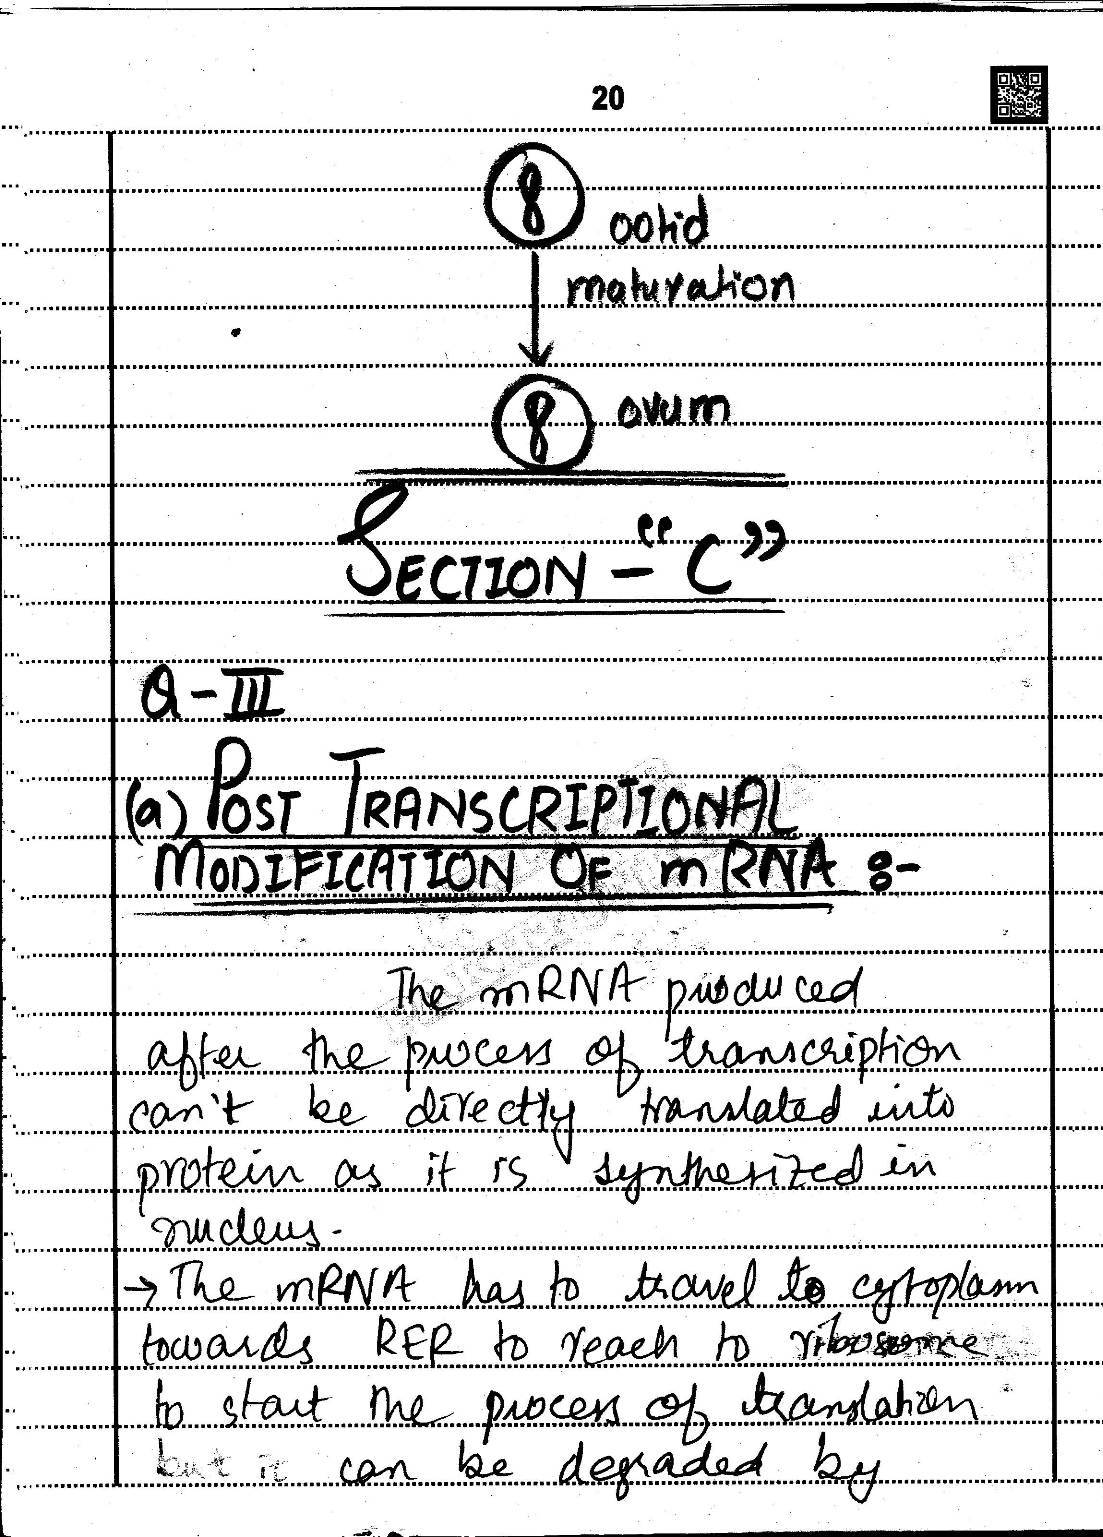 20
ootid
maturation
ovum
SECTION - "C"
Q-III
(a) POST TRANSCRIPTIONAL
MODIFICATION OF mRNA :-
The mRNA produced
after the process of transcription
can't be directly translated into
protein as it is synthesized in
nucleus.
→ The mRNA has to travel to cytoplasm
towards RER to reach to ribosome
to start the process of translation
but it can be degraded by